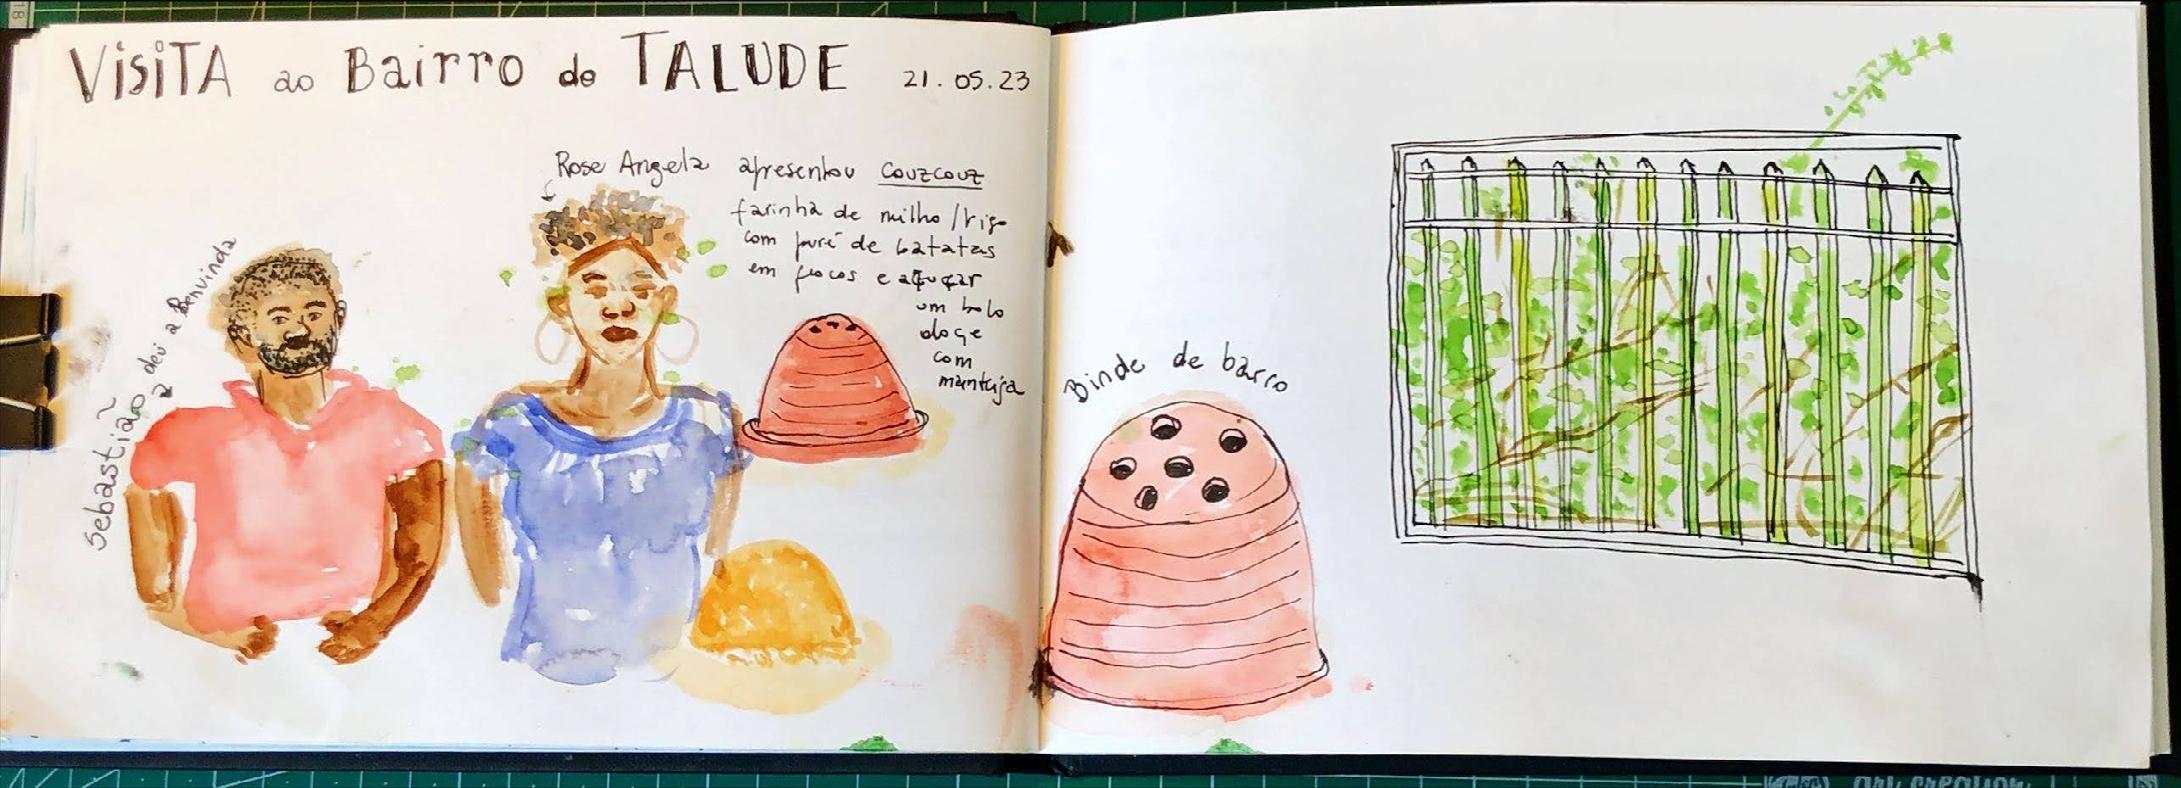 VisiTA ao Bairro do TALUDE 21.05.23
Rose Angela apresentou couzcouz
farinha de milho / trigo
com puré de batatas
em flocos e açuçar
um bolo
doçe
com
manteiga
Sebastião a deu a Benvinda
Binde de barro
18